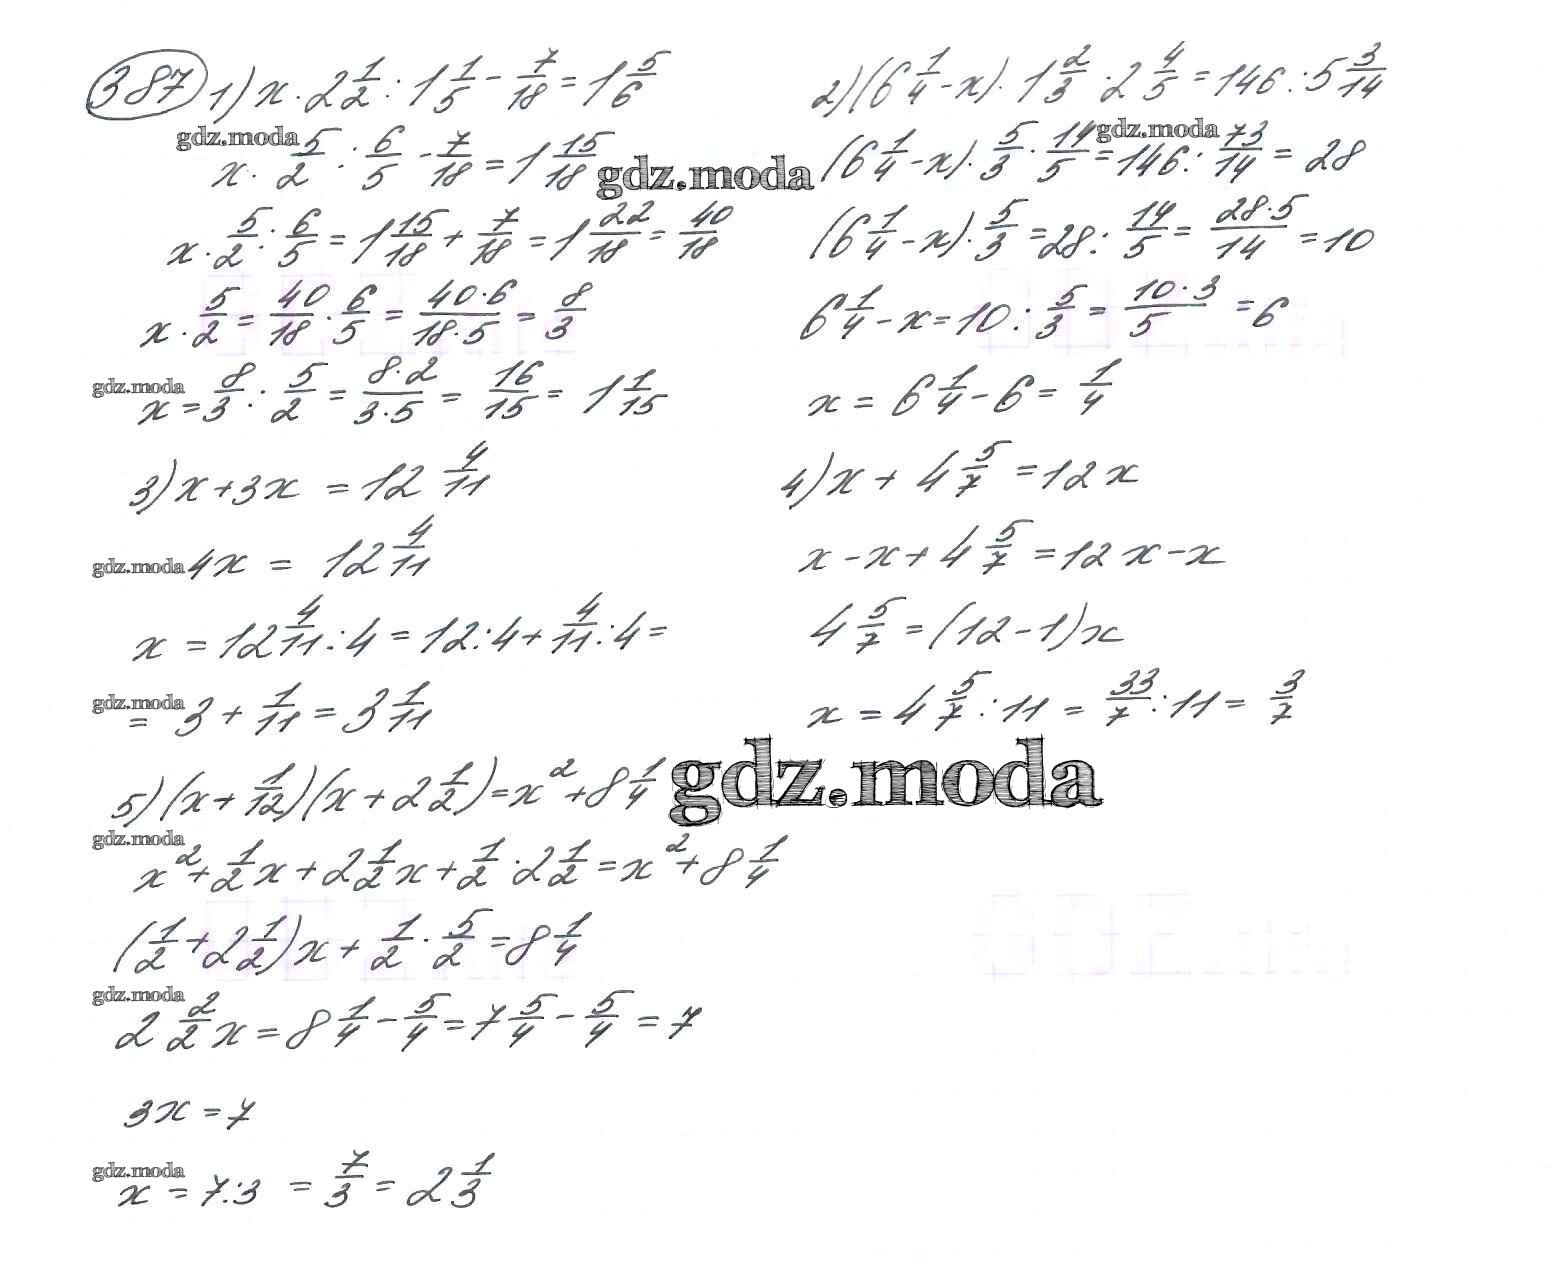 387 1) x · 2 1/2 : 1 1/5 − 7/18 = 1 5/6
gdz.moda
x · 5/2 : 6/5 − 7/18 = 1 15/18
gdz.moda
x · 5/2 : 6/5 = 1 15/18 + 7/18 = 1 22/18 = 40/18
x · 5/2 = 40/18 · 6/5 = 40·6/18·5 = 8/3
gdz.moda
x = 8/3 : 5/2 = 8·2/3·5 = 16/15 = 1 1/15
2) (6 1/4 − x) · 1 2/3 · 2 4/5 = 146 : 5 3/14
gdz.moda
(6 1/4 − x) · 5/3 · 14/5 = 146 : 73/14 = 28
(6 1/4 − x) · 5/3 = 28 : 14/5 = 28·5/14 = 10
6 1/4 − x = 10 : 5/3 = 10·3/5 = 6
x = 6 1/4 − 6 = 1/4
3) x + 3x = 12 4/11
gdz.moda
4x = 12 4/11
x = 12 4/11 : 4 = 12 : 4 + 4/11 : 4 =
gdz.moda
= 3 + 1/11 = 3 1/11
4) x + 4 5/7 = 12 x
x − x + 4 5/7 = 12 x − x
4 5/7 = (12 − 1) x
x = 4 5/7 : 11 = 33/7 : 11 = 3/7
5) (x + 1/12)(x + 2 1/2) = x² + 8 1/4
gdz.moda
gdz.moda
x² + 1/2 x + 2 1/2 x + 1/2 · 2 1/2 = x² + 8 1/4
(1/2 + 2 1/2) x + 1/2 · 5/2 = 8 1/4
gdz.moda
2 2/2 x = 8 1/4 − 5/4 = 7 5/4 − 5/4 = 7
3x = 7
gdz.moda
x = 7 : 3 = 7/3 = 2 1/3